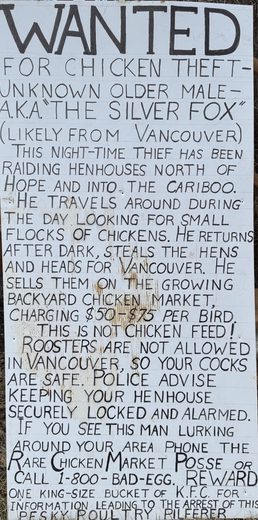 WANTED
FOR CHICKEN THEFT-
UNKNOWN OLDER MALE-
A.K.A. "THE SILVER FOX"
(LIKELY FROM VANCOUVER)
THIS NIGHT-TIME THIEF HAS BEEN
RAIDING HENHOUSES NORTH OF
HOPE AND INTO THE CARIBOO.
HE TRAVELS AROUND DURING
THE DAY LOOKING FOR SMALL
FLOCKS OF CHICKENS. HE RETURNS
AFTER DARK, STEALS THE HENS
AND HEADS FOR VANCOUVER. HE
SELLS THEM ON THE GROWING
BACKYARD CHICKEN MARKET,
CHARGING $50-$75 PER BIRD.
THIS IS NOT CHICKEN FEED!
ROOSTERS ARE NOT ALLOWED
IN VANCOUVER, SO YOUR COCKS
ARE SAFE. POLICE ADVISE
KEEPING YOUR HENHOUSE
SECURELY LOCKED AND ALARMED.
IF YOU SEE THIS MAN LURKING
AROUND YOUR AREA PHONE THE
RARE CHICKEN MARKET POSSE OR
CALL 1-800-BAD-EGG. REWARD
ONE KING-SIZE BUCKET OF K.F.C. FOR
INFORMATION LEADING TO THE ARREST OF THIS
PESKY POULTRY PILFERER